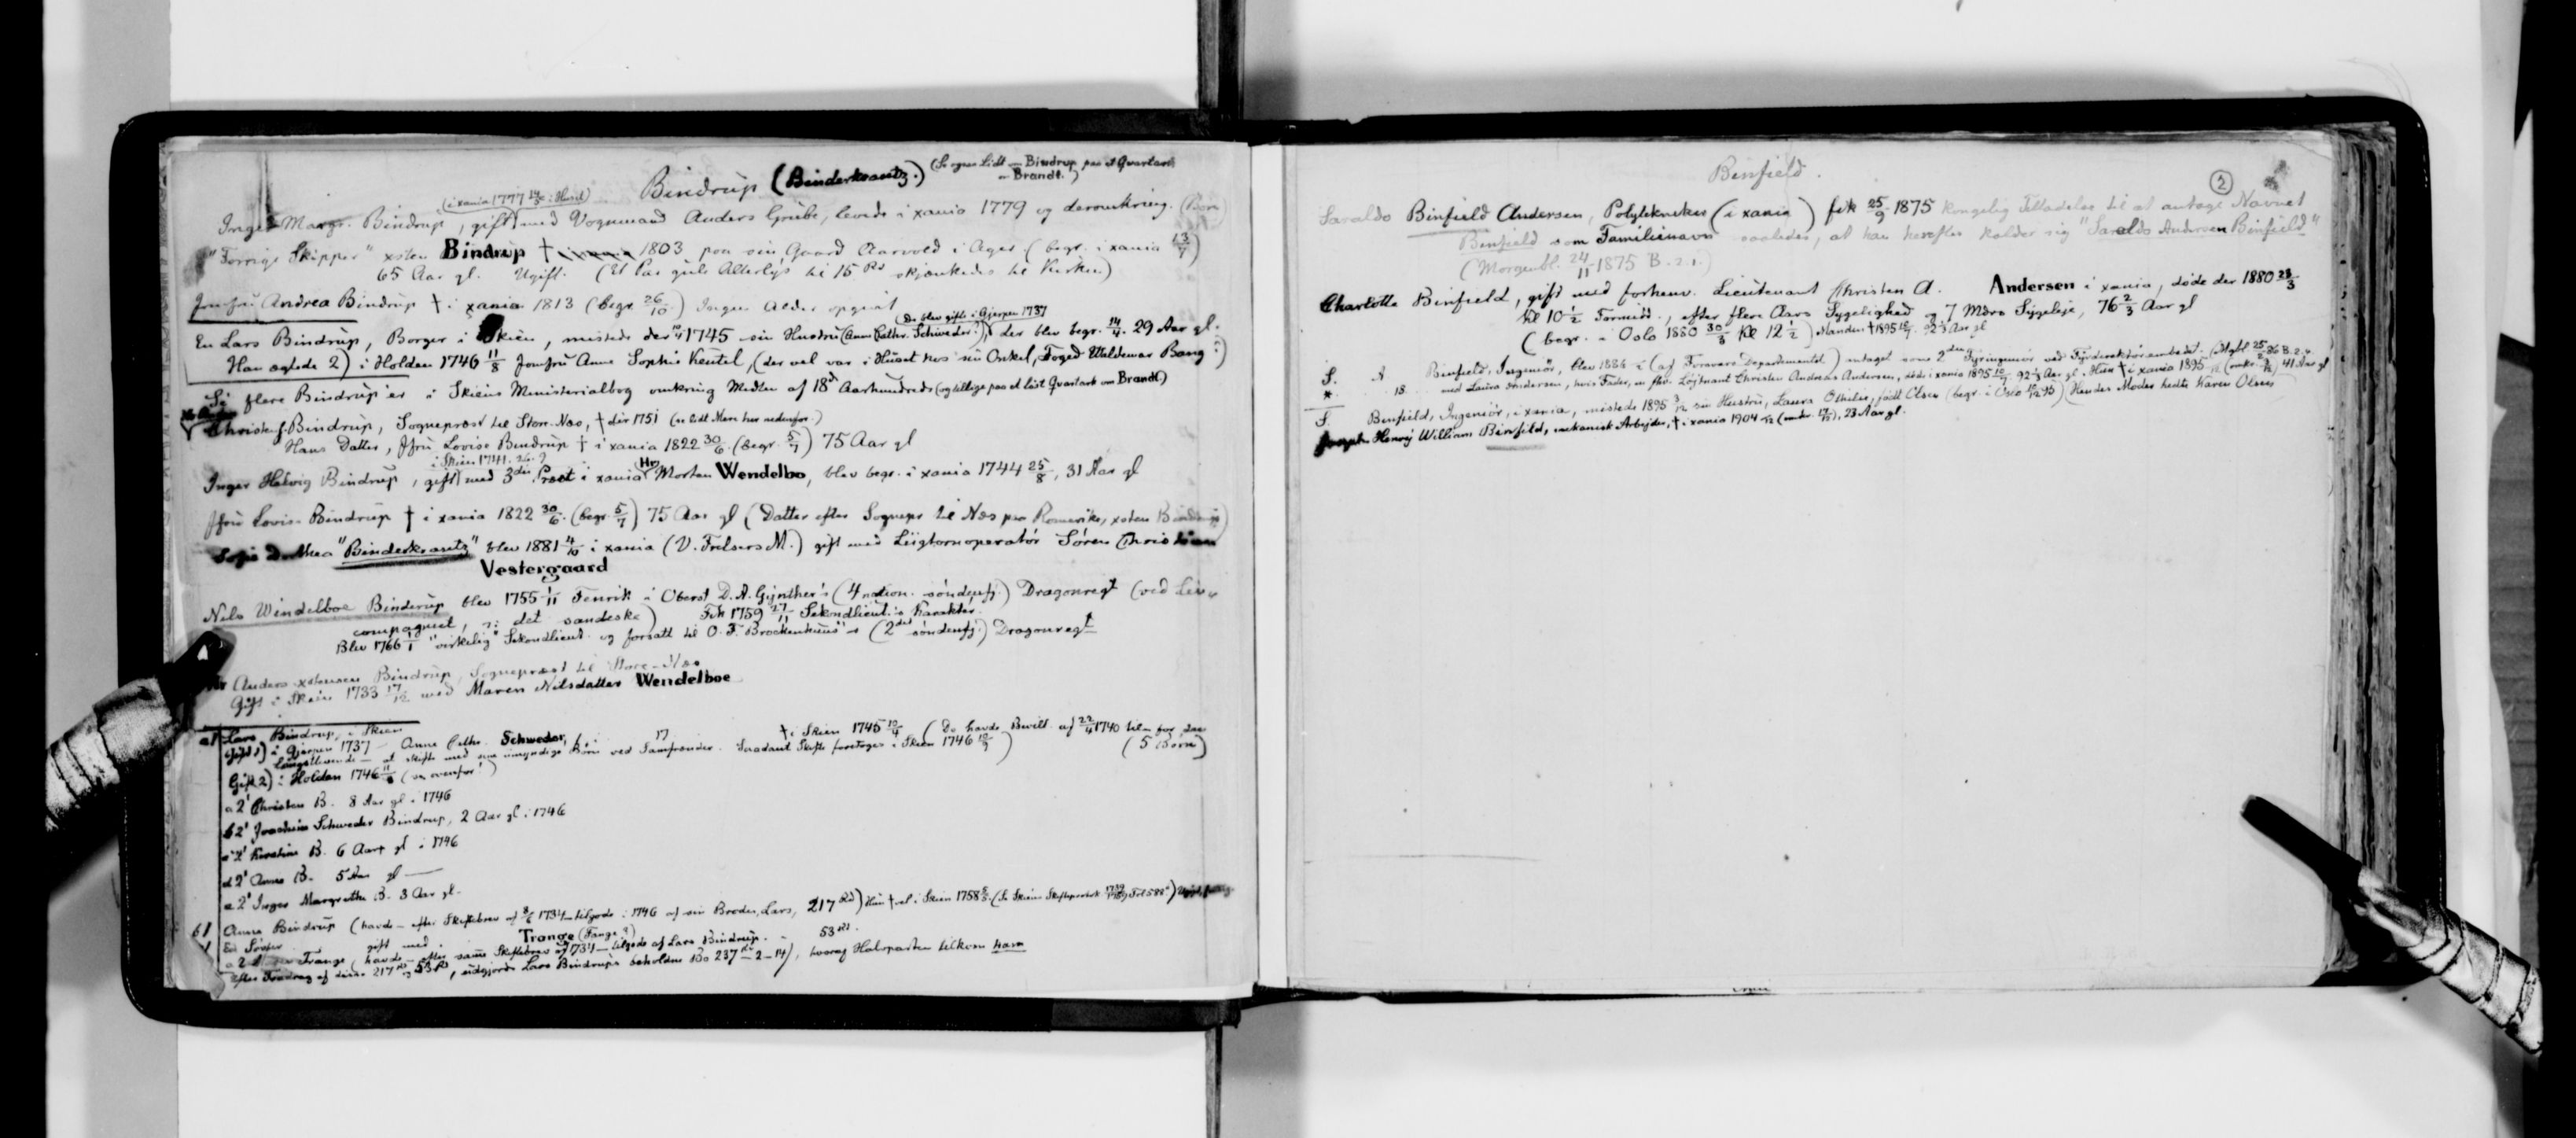 Bindrup (Binderkrantz.) (Se ogsaa Lidt om Bindrup paa et Qvartark
om Brandt.)
(i xania 1777 14/3 i Huset)
Inger Margr. Bindrup, gift med Vognmand Anders Grübe, levede i xania 1779 og deromkring. (Børn
"Forrige Skipper" xsten Bindrup † 1803 paa sin Gaard Aarvold i Ager (begr. i xania 13/7)
65 Aar gl. Ugift. (Et Par gule Alterlys til 15 Rd skjænkedes til Kirken)
Jomfru Andrea Bindrup † i xania 1813 (begr. 26/10) Ingen Alder opgivet
(De blev gifte i Gjerpen 1737
En Lars Bindrup, Borger i Skien, mistede der 10/4 1745 sin Hustru (Anne Cathr. Schweder?), der blev begr. 14/4. 29 Aar gl.
Han ægtede 2) i Holden 1746 11/8 Jomfru Anne Sophie Keutel, (der vel var i Huset hos sin Onkel, Foged Waldemar Bang?)
Se flere Bindrup'er i Skiens Ministerialbog omkring Midten af 18de Aarhundrede (og tillige paa et løst Qvartark om Brandt)
Bindrup, Sognepræst til Store-Næs, † der 1751 (se lidt Mere her nedenfor.)
Hans Datter, Jfru Lovise Bindrup † i xania 1822 30/6. (begr. 5/7) 75 Aar gl
i Skien 1741.
Inger Helvig Bindrup, gift med 3die Præst i xania Hr Morten Wendelbo, blev begr. i xania 1744 25/8, 31 Aar gl
Jfru Lovise Bindrup † i xania 1822 30/6. (begr. 5/7) 75 Aar gl (Datter efter Sognepr til Næs paa Romerike, xsten Bindrup)
Sofie Dorthea "Binderkrantz" blev 1881 4/10 i xania (V. Frelsers M.) gift med Liigtornoperatør Søren Christian
Vestergaard
Nils Windelboe Binderup blev 1755 1/11 Fenrik i Oberst D. A. Gynther's (4 nation. søndenfj.) Dragonregt (ved Liv-
compagniet, ɔ: det sandeske) Fik 1759 27/11 Sekondlieut.'s Karakter.
Blev 1766 1/1 "virkelig" Sekondlieut. og forsatt til O. F. Brockenhuus's (2det søndenfj.) Dragonregt
Anders xstensen Bindrup, Sognepræst til Store-Næs
Gift i Skien 1733 17/12 med Maren Nilsdatter Wendelboe
a1 Lars Bindrup, i Skien
Gift 1) i Gjerpen 1737 Anne Cathr. Schweder, † i Skien 1745 10/4 (De havde Bevill. af 22/4 1740 til for den
længstlevende at skifte med sine umyndige Børn ved Samfrænder. Saadant Skifte foretoges i Skien 1746 12/7) (5 Børn)
Gift 2) i Holden 1746 11/8 (se ovenfor!)
a 2' Christen B. 8 Aar gl. i 1746
b 2' Joachim Schweder Bindrup, 2 Aar gl. i 1746
c 2' Kirstine B. 6 Aar gl i 1746
d 2' Anne B. 5 Aar gl
e 2' Inger Margrethe B. 3 Aar gl.
b1 Anne Bindrup (havde efter Skiftebrev af 8/6 1734 tilgode i 1746 af sin Broder, Lars, 217 Rd) Hun † vel i Skien 1758
En Søster gift med Trange (Fange?) 53 Rd.
Trange, havde efter samme Skiftebrev af 1734 tilgode af Lars Bindrup.
Efter Fradrag af disse 217 Rd og 53 Rd, udgjorde Lars Bindrups beholdne Bo 237 Rd 2-14), hvoraf Halvparten tilkom ham
Binfield.
2
Saraldo Binfield Andersen, Polytekniker (i xania) fik 25/9 1875 kongelig Tilladelse til at antage Navnet
Binfield som Familienavn saaledes, at han herefter kalder sig "Saraldo Andersen Binfield"
(Morgenbl. 24/11 1875 B. 2. 1.)
Charlotte Binfield, gift med forhenv. Lieutenant Christen A. Andersen i xania, døde der 1880 23/3
Kl 10 1/2 Formidd., efter flere Aars Sygelighed og 7 Mdrs Sygeleje, 76 2/3 Aar gl
(begr. i Oslo 1880 30/3 Kl 12 1/2) Manden † 1895 10/7. 92 1/3 Aar gl
S. A Binfield, Ingeniør, blev 1886 i (af Forsvars-Departementet) antaget som 2den Fyringeniør ved Fyrdirektørembedet. (Mgbl. 25/2 86 B. 2. 4.
* 18 med Laura Andersen, hvis Fader, en fhv. Løjtnant Christen Andreas Andersen, døde i xania 1895 10/7 92 1/3 Aar gl. Hun † i xania 1895 41 Aar gl
S. Binfield, Ingeniør, i xania, mistede 1895 3/12 sin Hustru, Laura Othilie, født Olsen (begr. i Oslo 10/12 95) Hendes Moder hedte Karen Olsen
Joseph Henry William Binfield, mekanisk Arbejder, † i xania 1904, 23 Aar gl.